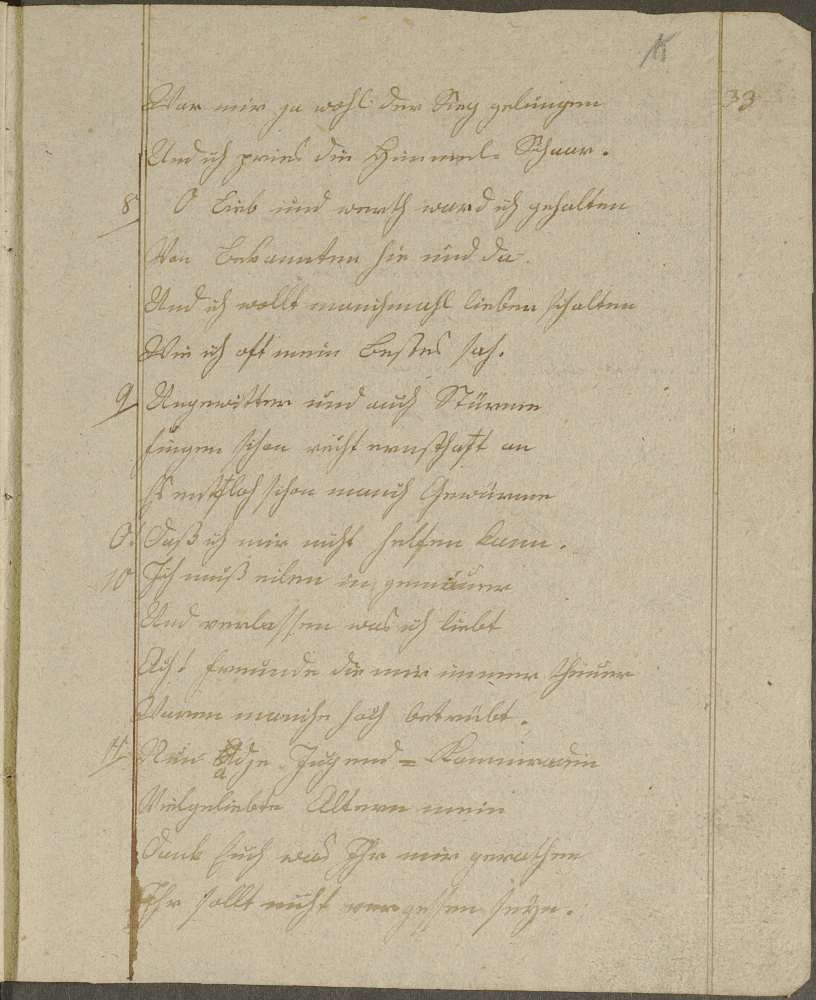 33
War mir ja wohl der Sieg gelungen
Und ich pries die Himmels Schaar.
8 O Lieb und werth ward ich gehalten
Von Bekannten hie und da.
Und ich wollt manichmahl lieber schalten
Wie ich oft mein Bestes sah.
9 Ungewitter und auch Stürme
fingen schon recht ernsthaft an
Es entfloh schon manch Gewürme
O! Daß ich mir nicht helfen kann.
10 Ich muß eilen in gemäuer
Und verlassen was ich liebt
Ach! freunde die mir immer theuer
Waren manche hoch betrübt.
11 Nun Adje Jugend = Kammeraden
Vielgeliebte Altern mein
Dank Euch was Ihr mir gerathen
Ihr sollt nicht vergessen seyn.